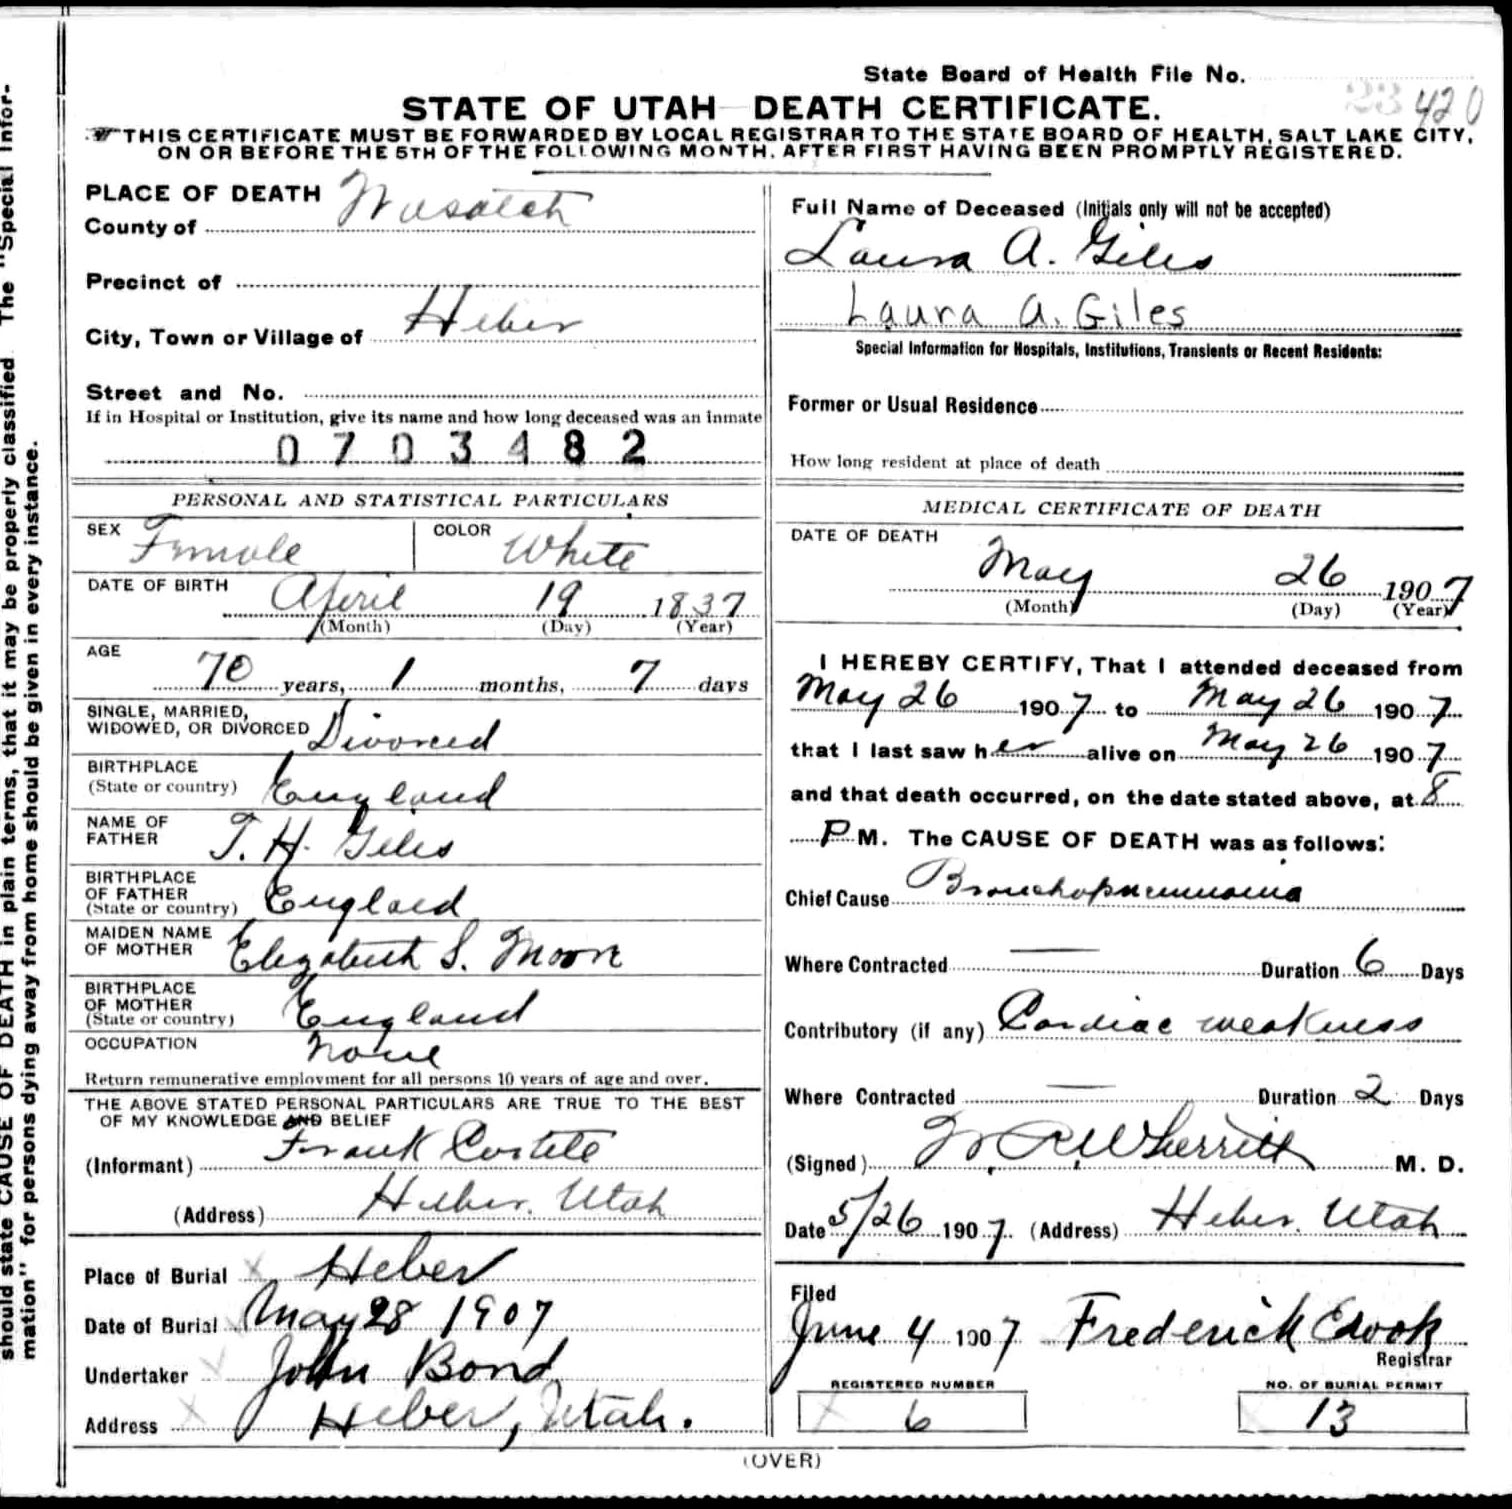 should state CAUSE OF DEATH in plain terms, that it may be properly classified The "Special Infor-
mation" for persons dying away from home should be given in every instance.
State Board of Health File No.
23 420
STATE OF UTAH DEATH CERTIFICATE.
THIS CERTIFICATE MUST BE FORWARDED BY LOCAL REGISTRAR TO THE STATE BOARD OF HEALTH, SALT LAKE CITY,
ON OR BEFORE THE 5TH OF THE FOLLOWING MONTH, AFTER FIRST HAVING BEEN PROMPTLY REGISTERED.
PLACE OF DEATH
County of Wasatch
Precinct of
City, Town or Village of Heber
Street and No.
If in Hospital or Institution, give its name and how long deceased was an inmate
0703482
Full Name of Deceased (Initials only will not be accepted)
Laura A. Giles
Laura A. Giles
Special Information for Hospitals, Institutions, Transients or Recent Residents:
Former or Usual Residence
How long resident at place of death
PERSONAL AND STATISTICAL PARTICULARS
SEX Female COLOR White
DATE OF BIRTH April 19 1837
(Month) (Day) (Year)
AGE
70 years, 1 months, 7 days
SINGLE, MARRIED,
WIDOWED, OR DIVORCED Divorced
BIRTHPLACE
(State or country) England
NAME OF
FATHER T. H. Giles
BIRTHPLACE
OF FATHER
(State or country) England
MAIDEN NAME
OF MOTHER Elizabeth S. Moore
BIRTHPLACE
OF MOTHER
(State or country) England
OCCUPATION None
Return remunerative employment for all persons 10 years of age and over.
THE ABOVE STATED PERSONAL PARTICULARS ARE TRUE TO THE BEST
OF MY KNOWLEDGE AND BELIEF
(Informant) Frank
(Address) Heber. Utah
Place of Burial Heber
Date of Burial May 28 1907
Undertaker John Bond
Address Heber, Utah.
MEDICAL CERTIFICATE OF DEATH
DATE OF DEATH
May 26 1907
(Month) (Day) (Year)
I HEREBY CERTIFY, That I attended deceased from
May 26 1907 to May 26 1907
that I last saw her alive on May 26 1907
and that death occurred, on the date stated above, at 8
P M. The CAUSE OF DEATH was as follows:
Chief Cause Bronchopneumonia
Where Contracted — Duration 6 Days
Contributory (if any) Cardiac weakness
Where Contracted — Duration 2 Days
(Signed) M. D.
Date 5/26 1907. (Address) Heber. Utah
Filed
June 4 1907 Frederick Crook
Registrar
REGISTERED NUMBER
6
NO. OF BURIAL PERMIT
13
(OVER)